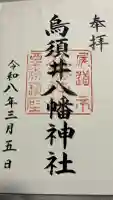 奉拝
烏須井八幡神社
令和八年三月五日